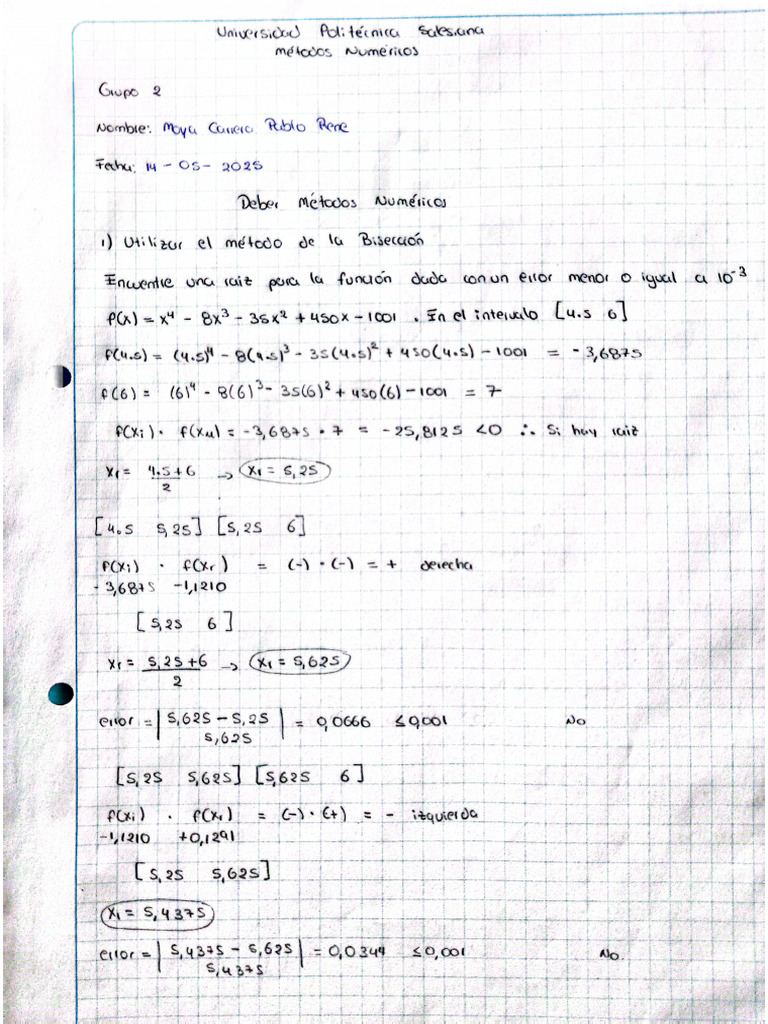 Universidad Politécnica Salesiana
Métodos Numéricos
Grupo 2
Nombre: Moya Carrera Pablo Rene
Fecha: 14 - 05 - 2025
Deber Métodos Numéricos
1) Utilizar el método de la Bisección
Encuentre una raiz para la función dada con un error menor o igual a 10⁻³
f(x) = x⁴ - 8x³ - 35x² + 450x - 1001 . En el intervalo [4.5 6]
f(4.5) = (4.5)⁴ - 8(4.5)³ - 35(4.5)² + 450(4.5) - 1001 = - 3,6875
f(6) = (6)⁴ - 8(6)³ - 35(6)² + 450(6) - 1001 = 7
f(xi) · f(xu) = -3,6875 · 7 = -25,8125 < 0 ∴ Si hay raiz
xr = (4.5+6)/2 → xr = 5,25
[4.5 5,25] [5,25 6]
f(xi) · f(xr) = (-) · (-) = + derecha
-3,6875 -1,1210
[5,25 6]
xr = (5,25+6)/2 → xr = 5,625
error = |(5,625 - 5,25)/5,625| = 0,0666 ≤ 0,001 No
[5,25 5,625] [5,625 6]
f(xi) · f(xr) = (-) · (+) = - izquierda
-1,1210 +0,1291
[5,25 5,625]
xr = 5,4375
error = |(5,4375 - 5,625)/5,4375| = 0,0344 ≤ 0,001 No.